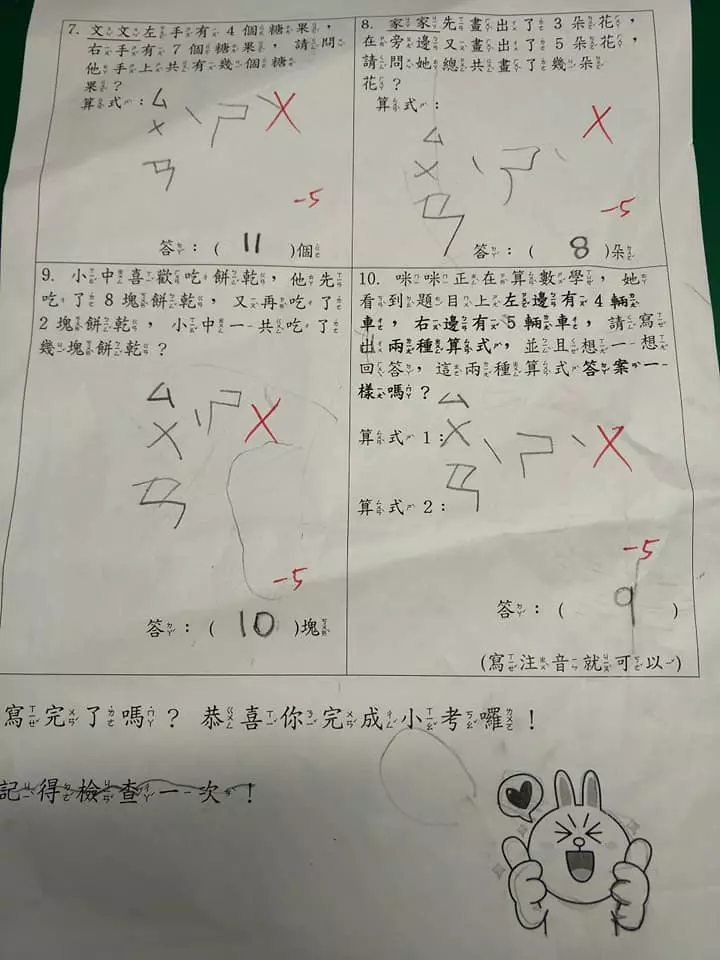 7. 文文左手有 4 個糖果，
右手有 7 個糖果，請問
他手上共有幾個糖
果？
算式：
ㄙㄨㄢˋ ㄕˋ
X
-5
答：( 11 )個
8. 家家先畫出了 3 朵花，
在旁邊又畫出了 5 朵花，
請問她總共畫了幾朵
花？
算式：
ㄙㄨㄢˋ ㄕˋ
X
-5
答：( 8 )朵
9. 小中喜歡吃餅乾，他先
吃了 8 塊餅乾，又再吃了
2 塊餅乾，小中一共吃了
幾塊餅乾？
ㄙㄨㄢˋ ㄕˋ
X
-5
答：( 10 )塊
10. 咪咪正在算數學，她
看到題目上左邊有 4 輛
車，右邊有 5 輛車，請寫
出兩種算式，並且想一想
回答，這兩種算式答案一
樣嗎？
算式 1：
ㄙㄨㄢˋ ㄕˋ
X
算式 2：
-5
答：( 9 )
(寫注音就可以)
寫完了嗎？恭喜你完成小考囉！
記得檢查一次！